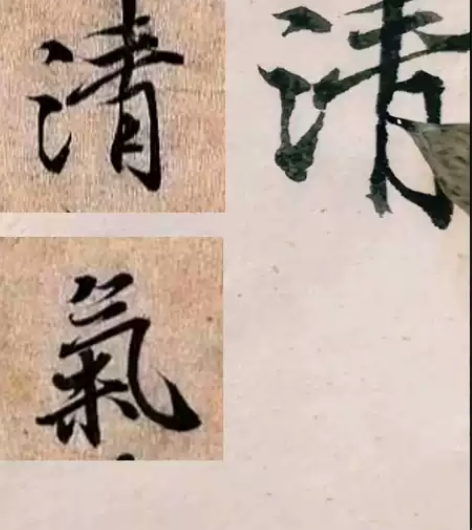 清
氣
清